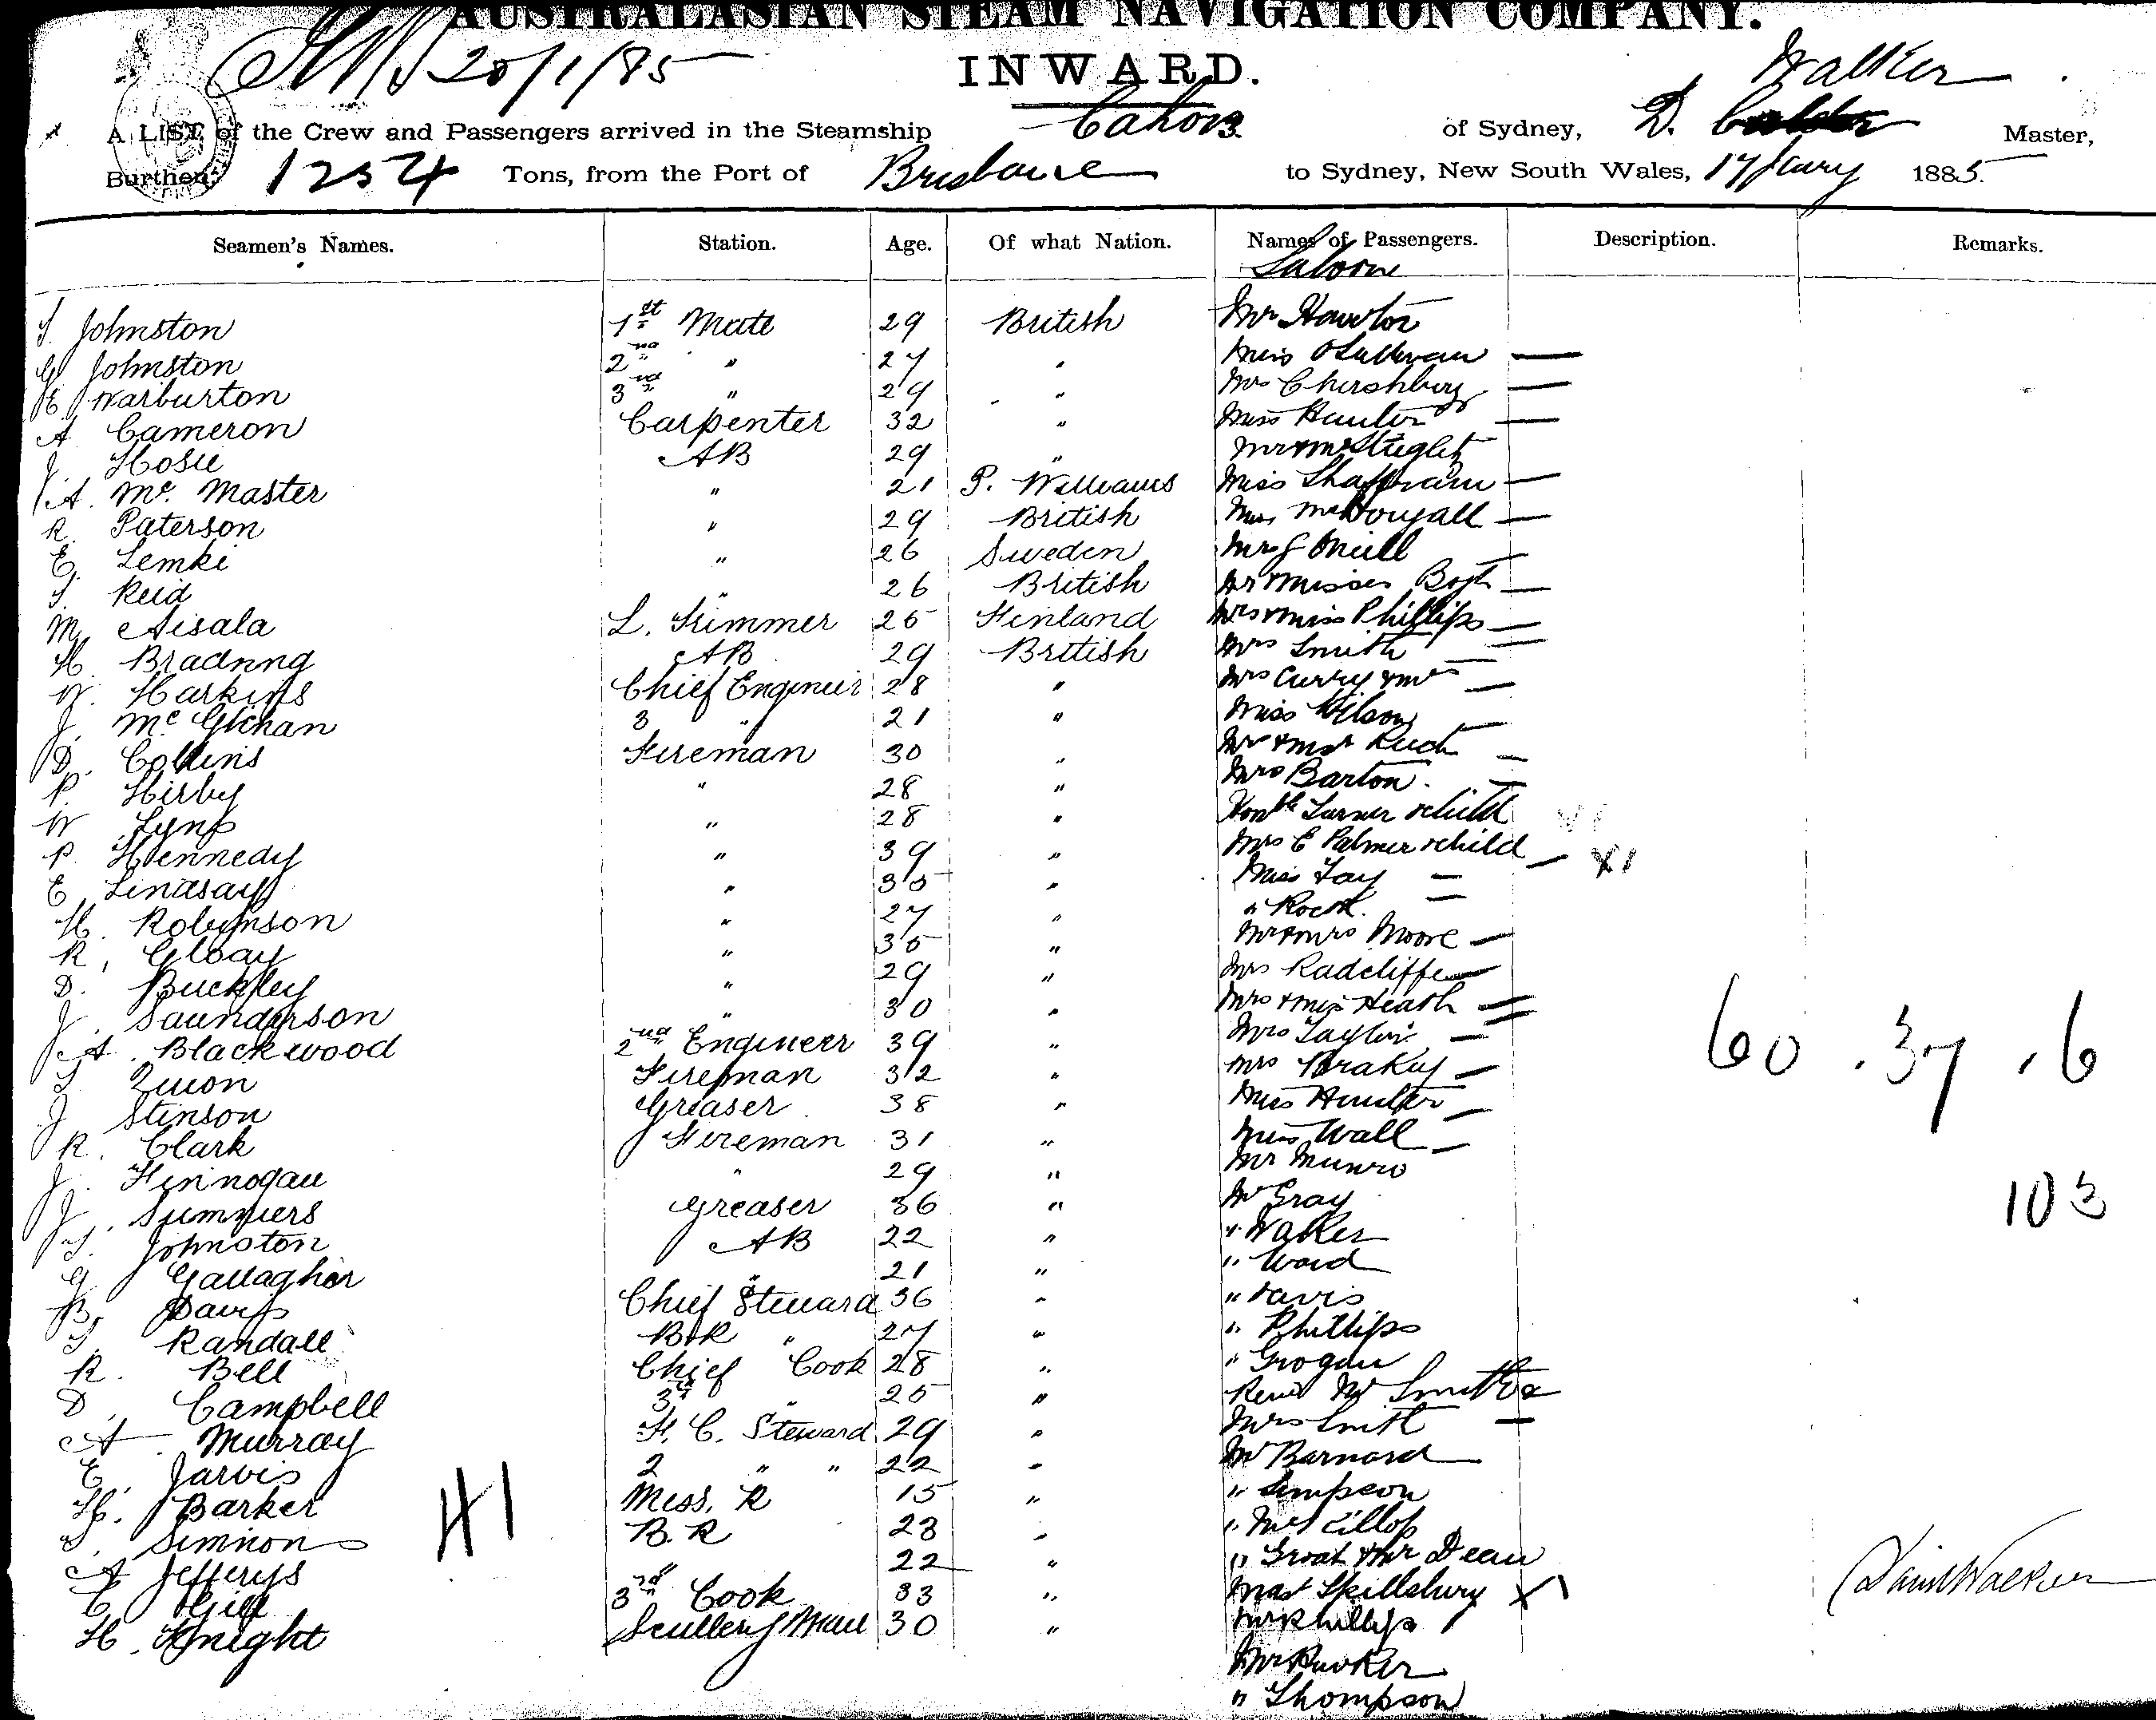 AUSTRALASIAN STEAM NAVIGATION COMPANY.
20/1/85
INWARD.
Walker
A LIST of the Crew and Passengers arrived in the Steamship Cahors of Sydney, D. Master,
Burthen, 1254 Tons, from the Port of Brisbane to Sydney, New South Wales, 17 Jany 1885.
Seamen's Names. Station. Age. Of what Nation. Names of Passengers. Description. Remarks.
Saloon
S. Johnston 1st Mate 29 British Mr
G Johnston 2nd " 27 " Miss O'Sullivan —
E Warburton 3rd " 29 " Mrs —
A Cameron Carpenter 32 " Miss Hunter —
J Hosie AB 29 " Mr & Mrs Stieglitz
A. Mc. Master " 21 P. Williams Miss —
R. Paterson " 29 British McDougall —
E. Lemki " 26 Sweden Mrs J Oneill —
S. Reid " 26 British Misses —
M. Aisala L. Trimmer 25 Finland Mrs & Miss Phillips —
H. Bradnng AB 29 British Mrs Smith —
W. Harkins Chief Engineer 28 " Mrs Curry & —
J. Mc Glichan 3 " 21 " Miss Wilson —
D. Collins Fireman 30 " —
P. Hirby " 28 " Mrs Barton. —
W Lynß " 28 " Honble Turner & child
P. Kennedy " 39 " Mrs C Palmer & child — X1
E Lindsay " 35 " Miss Fay —
H. Robinson " 27 " " —
R, Gloay " 35 " Mr & Mrs Moore —
D. Buckley " 29 " Mrs Radcliffe —
J. Saunderson " 30 " Mrs & Miss Heath =
A. Blackwood 2nd Engineer 39 " Mrs Taylor —
60 . 37 . 6
Fireman 32 " Mrs —
J Stinson Greaser 38 " Miss —
R. Clark Fireman 31 " Miss Wall —
J. Finnogan " 29 " Mr Munro
J. Summers Greaser 36 " Mr Gray
103
S. Johnston AB 22 " " Walker
G Gallagher " 21 " " Ward
B. Davis Chief Steward 36 " " Davis
S. Randall BR " 27 " " Phillips
R. Bell Chief Cook 28 " " Grogan
D. Campbell 3rd " 25 " Revd Mr Smith
A. Murray F. C. Steward 29 " Mrs Smith —
E. Jarvis 2 " " 22 " Mr Barnard
H. Barker Mess. R 15 " " Simpson
41
S. Simnon B. R 23 " " McKillop
A Jefferys 22 " " Groat & Mr Dean
C Gill 3rd Cook 33 " Mast Spillsbury X1
H. Knight Scullery Man 30 " Mr Phillips
David Walker
Mr
" Thompson